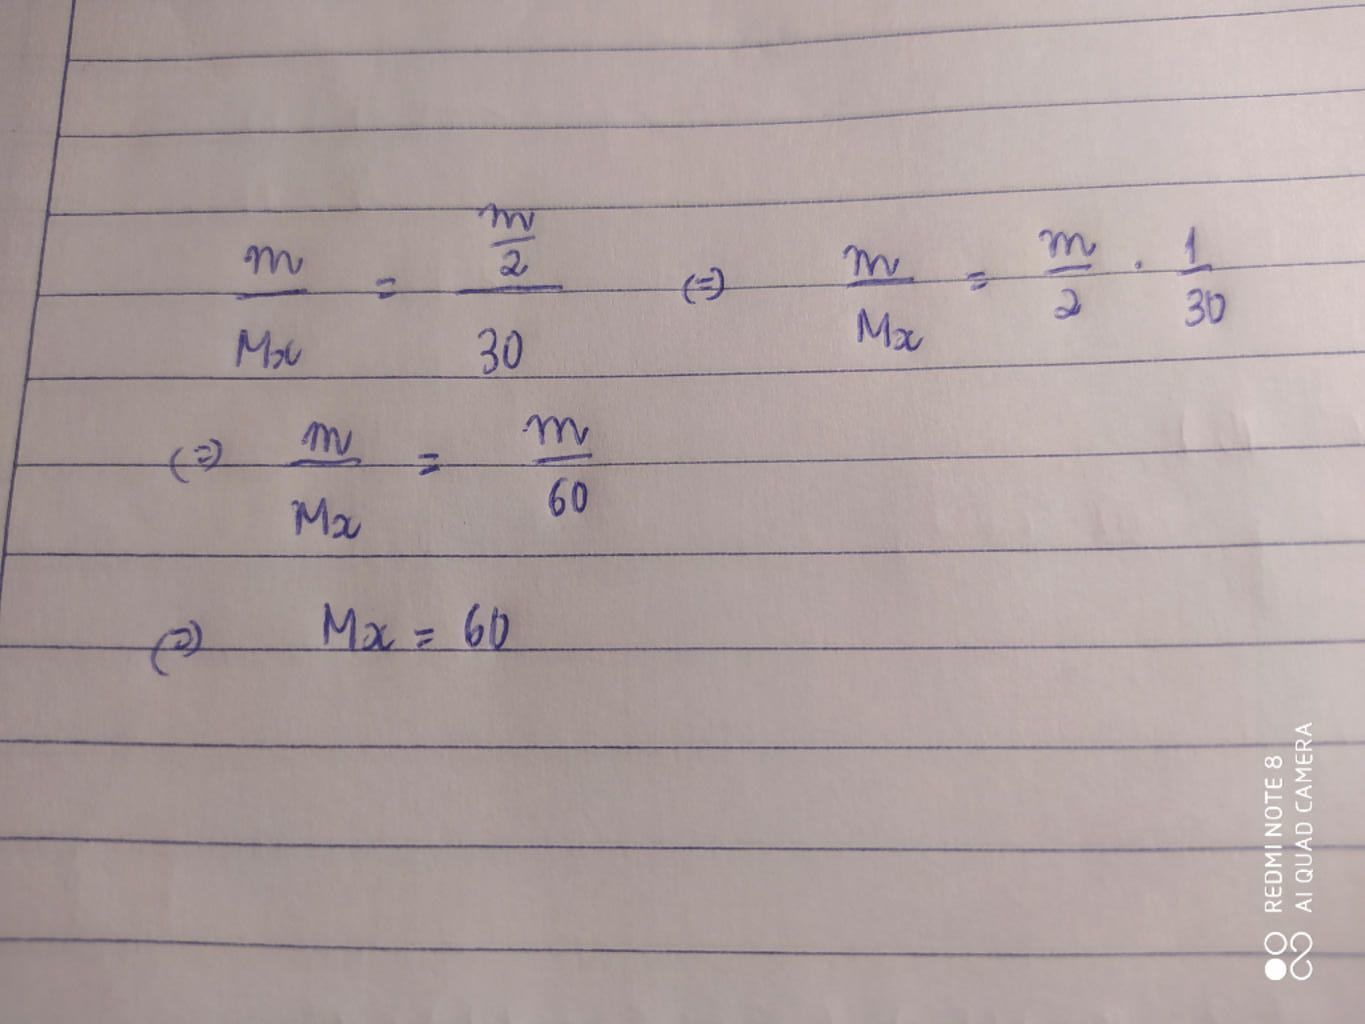 m/Mx = (m/2)/30 (=) m/Mx = m/2 . 1/30
(=) m/Mx = m/60
(=) Mx = 60
REDMI NOTE 8
AI QUAD CAMERA